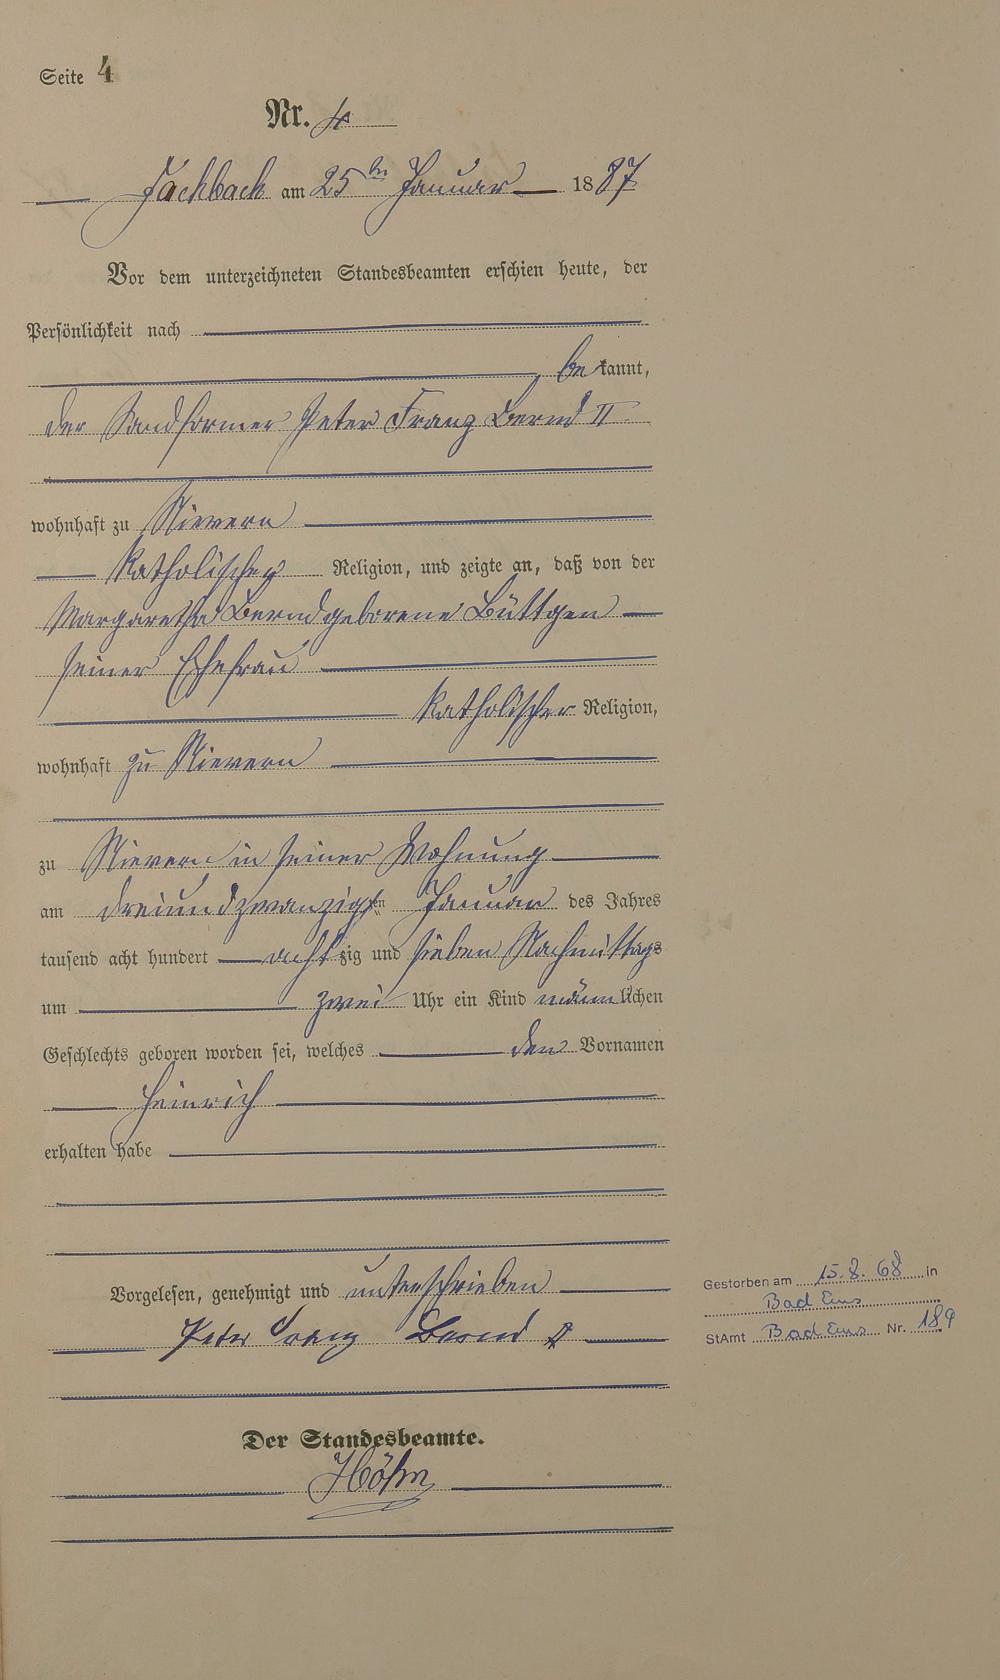 Seite 4
Nr. 4
Fachbach am 25ten Januar 1887
Vor dem unterzeichneten Standesbeamten erschien heute, der
Persönlichkeit nach
bekannt,
der Sandformer Peter Franz Bernd II
wohnhaft zu Nievern
katholischer Religion, und zeigte an, daß von der
Margaretha Bernd geborene Büttgen
seiner Ehefrau
katholischer Religion,
wohnhaft zu Nievern
zu Nievern in seiner Wohnung
am dreiundzwanzigsten Januar des Jahres
tausend acht hundert achtzig und sieben Nachmittags
um zwei Uhr ein Kind männlichen
Geschlechts geboren worden sei, welches den Vornamen
Heinrich
erhalten habe
Vorgelesen, genehmigt und unterschrieben
Peter Franz Bernd II
Der Standesbeamte.
Höhn
Gestorben am 15.8.68 in
Bad Ems
StAmt Bad Ems Nr. 189